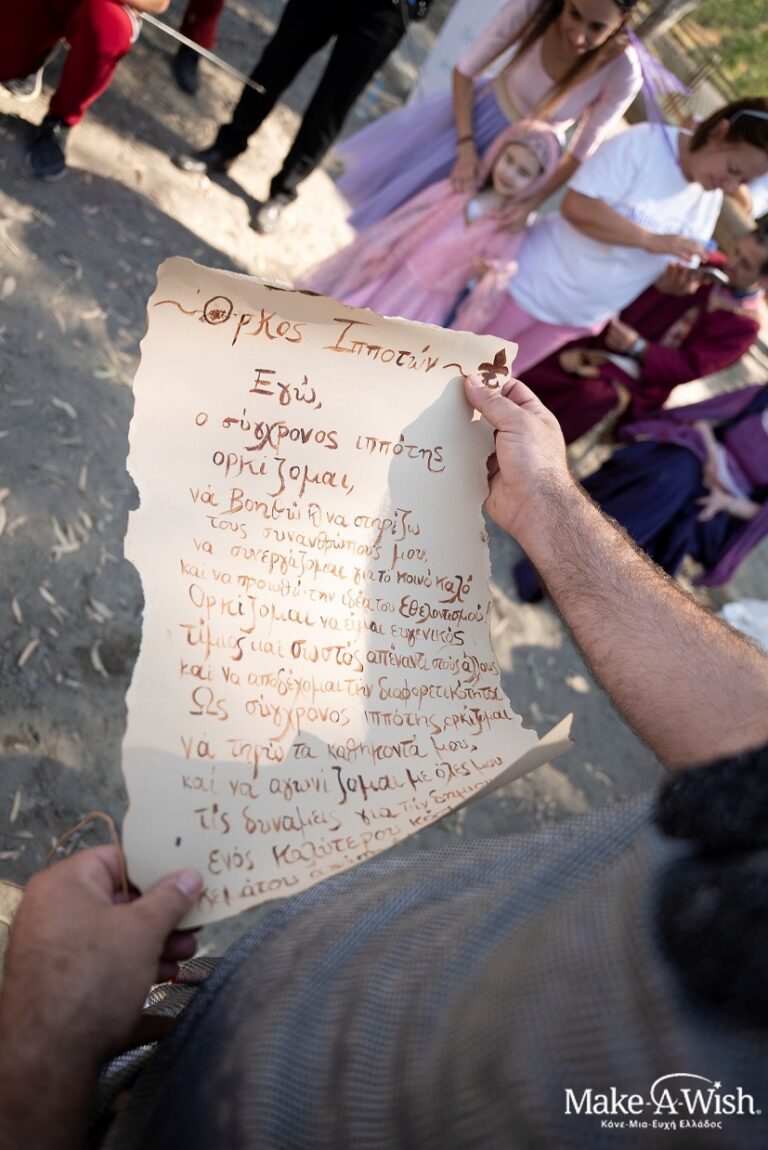 ~ Όρκος Ιπποτών ~
Εγώ,
ο σύγχρονος ιππότης
ορκίζομαι,
νά βοηθώ & να στηρίζω
τους συνανθρώπους μου,
να συνεργάζομαι για τό κοινό καλό
και να προωθώ την ιδέα του Εθελοντισμού!
Ορκίζομαι να είμαι ευγενικός
τίμιος και σωστός απέναντι στους άλλους
και να αποδέχομαι την διαφορετικότητα
Ως σύγχρονος ιππότης ορκίζομαι
νά τηρώ τα καθήκοντά μου,
και να αγωνίζομαι με όλες μου
τις δυνάμεις για τήν
ενός καλύτερου
γεμάτου
Make-A-Wish®
Κάνε-Μια-Ευχή Ελλάδος